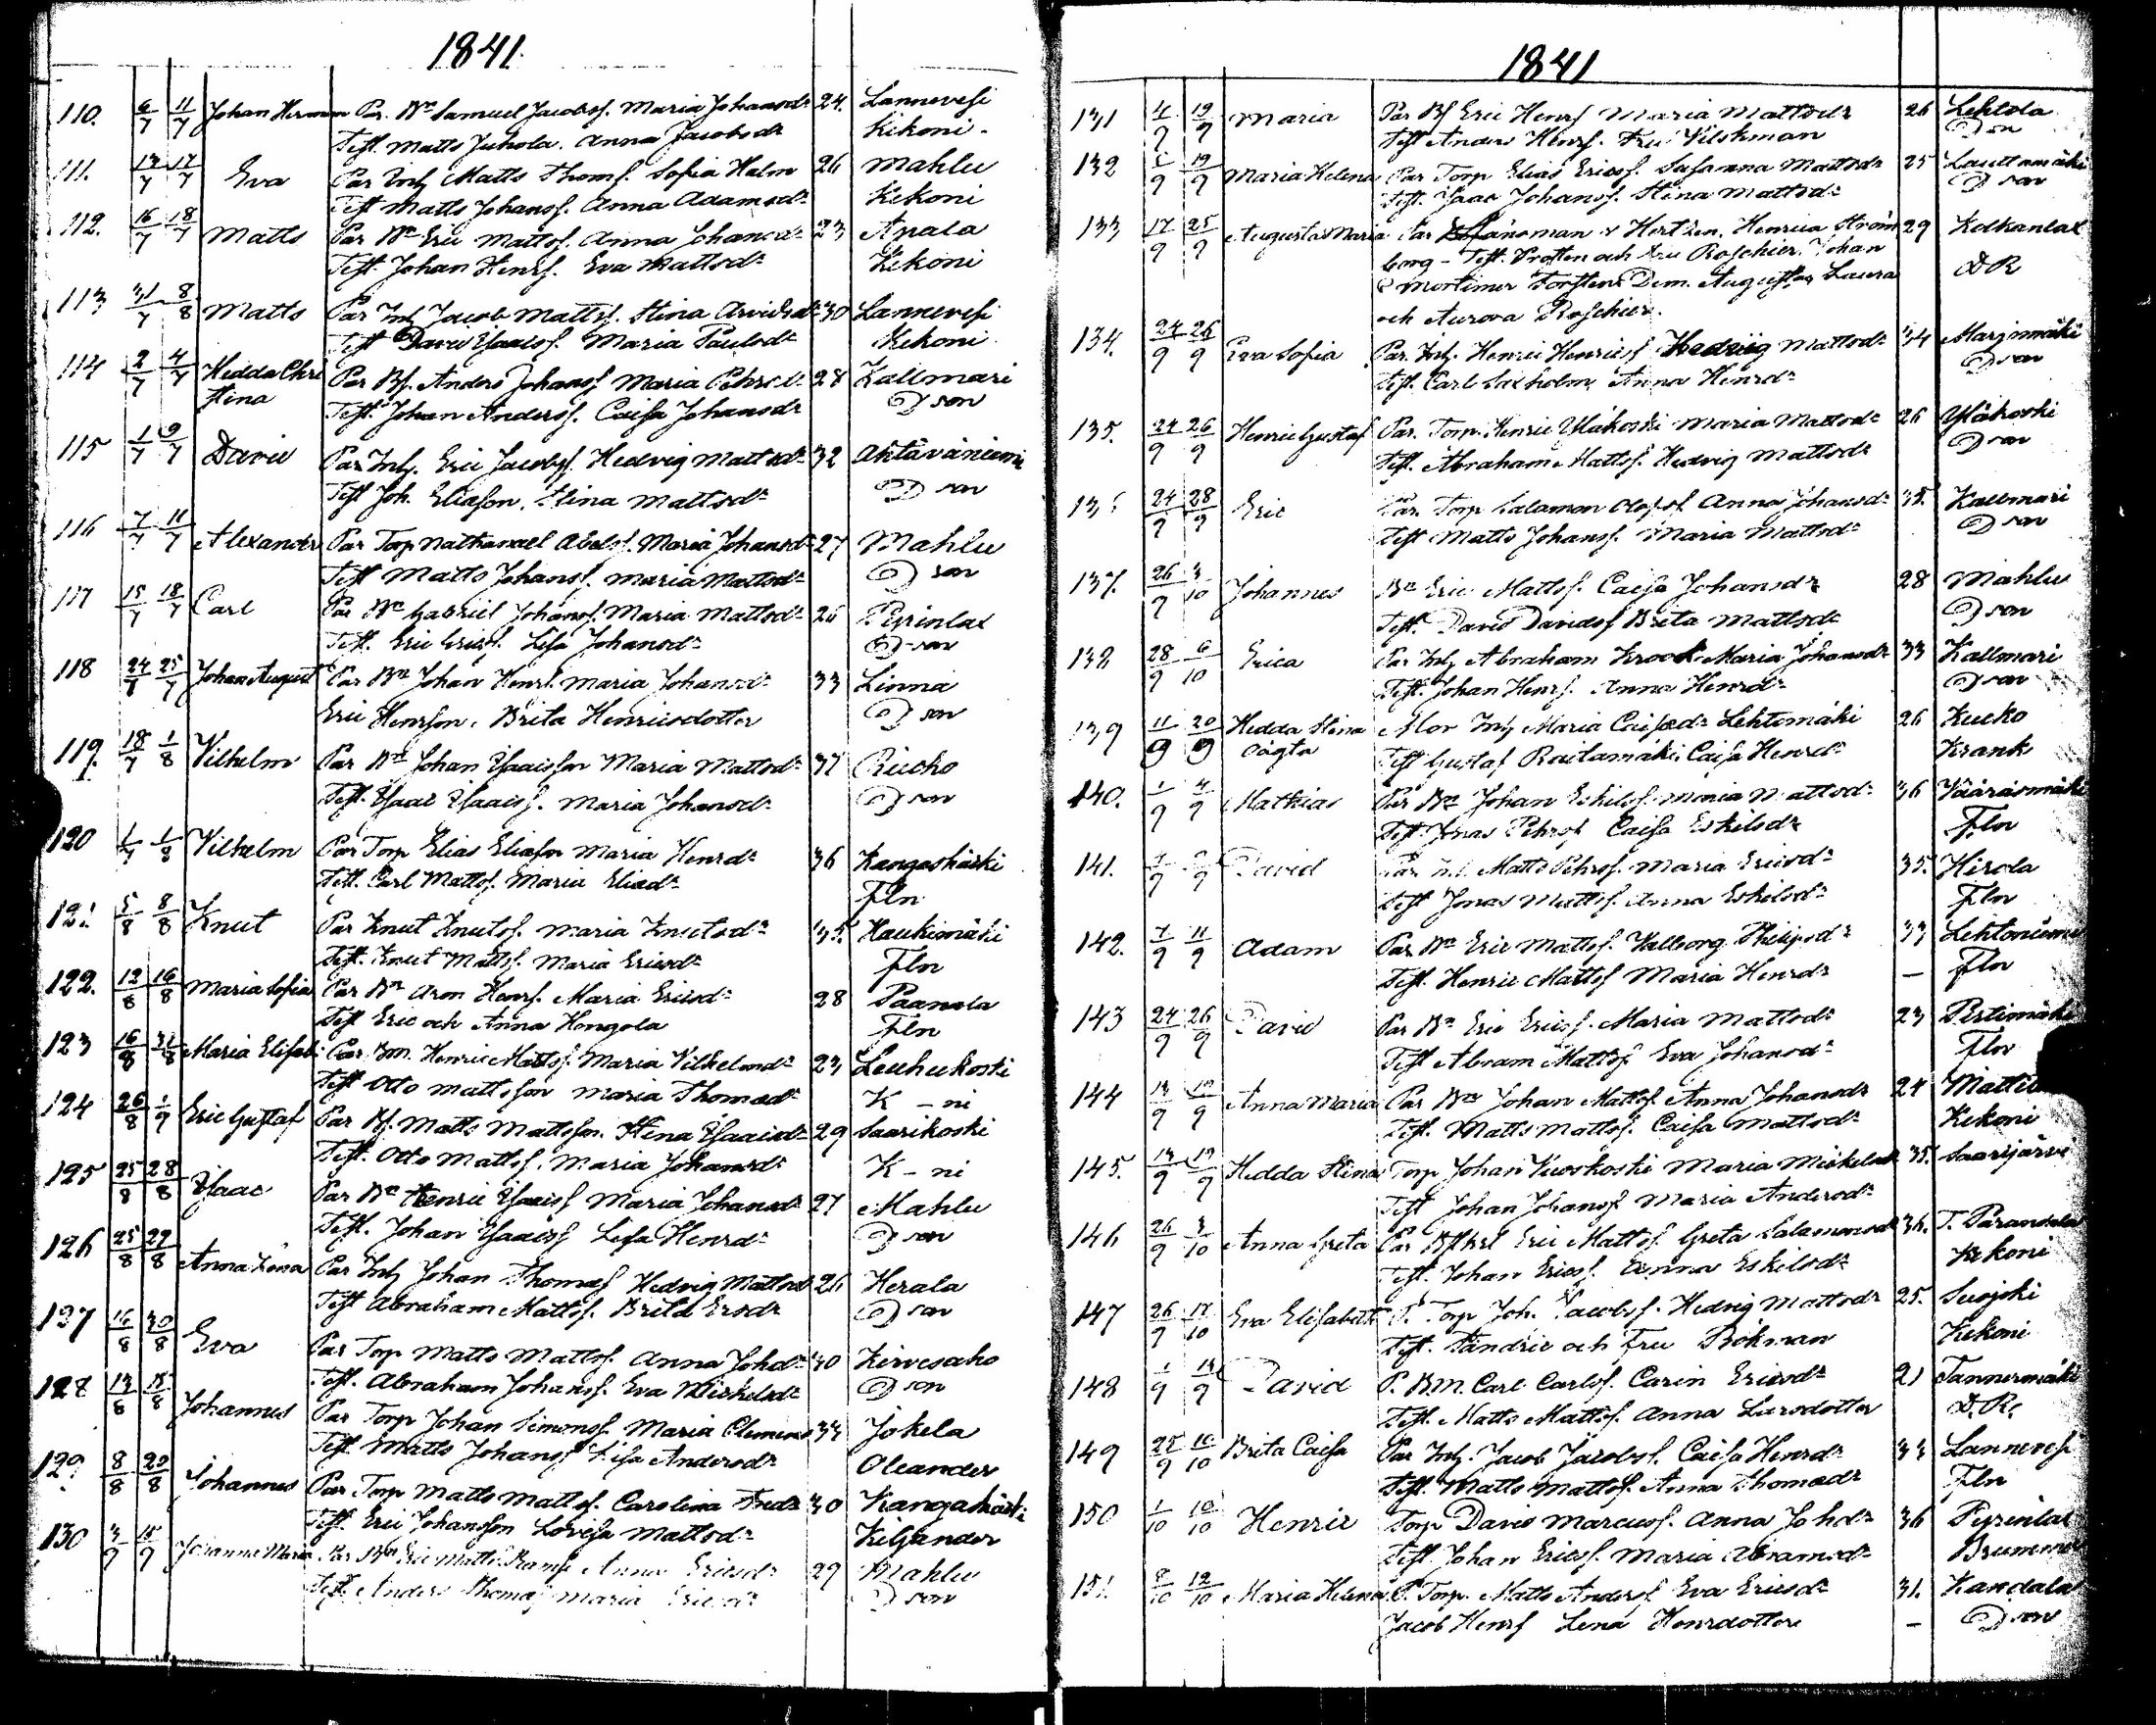 1841
110. 6/7 11/7 Johan Herman Par. Bn Samuel Jacobsf. Maria Johansdr 24. Lannevesi
Test. Matts Juhola. Anna Jacobsdr Kekoni
111. 13/7 17/7 Eva Par Inh Matts Thomf. Sofia Holm 26 Mahlu
Test Matts Johansf. Anna Adamsdr Kekoni
112. 16/7 18/7 Matts Par Bn Eric Mattsf. Anna Johansdr 23 Apala
Test. Johan Henrf. Eva Mattsdr Kekoni
113 31/7 8/8 Matts Par Inh Jacob Mattsf. Stina Arvidsdr 30 Lannevesi
Test David Isaacsf. Maria Paulsdr Kekoni
114 2/7 4/7 Hedda Chri Par Bf. Anders Johansf Maria Pehrsdr 28 Kallmari
stina Test. Johan Andersf. Caisa Johansdr D son
115 1/7 9/7 David Par Inh. Eric Jacobsf. Hedvig Mattsdr 32 Ahtäväniemi
Test Joh. Eliasson. Stina Mattsdr D son
116 7/7 11/7 Alexander Par Torp Nathanael Abelsf. Maria Johansdr 27 Mahlu
Test Matts Johansf. Maria Mattsdr D son
117 15/7 18/7 Carl Par Bn Gabriel Johansf. Maria Mattsdr 26 Pyrinlax
Test. Eric Ericsf. Lisa Johansdr D son
118 24/7 25/7 Johan August Par Bn Johan Henrf. Maria Johansdr 33 Linna
Eric Henrsson. Brita Henricsdotter D son
119. 18/7 1/8 Vilhelm Par Bn Johan Isaacsson Maria Mattsdr 37 Riecko
Test. Isaac Isaacsf. Maria Johansdr D son
120 1/7 1/8 Vilhelm Par Torp Elias Eliasson Maria Henrdr 36 Kangashäski
Test. Carl Mattsf. Maria Eliasdr Fln
121 5/8 8/8 Knut Par Knut Knutsf. Maria Knutsdr 35 Haukimäki
Test. Knut Mattsf. Maria Ericsdr Fln
122. 12/8 16/8 Maria Sofia Par Bn Aron Henrf. Maria Ericsdr 28 Paanala
Test Eric och Anna Hongola Fln
123 16/8 31/8 Maria Elisab. Par Bm. Henric Mattsf. Maria Vilhelmsdr 23 Leuhukoski
Test Otto Mattsson Maria Thomasdr K - ni
124 26/8 1/9 Eric Gustaf Par Bf. Matts Mattsson. Stina Isaacsdr 29 Saarikoski
Test. Otto Mattsf. Maria Johansdr K - ni
125 25/8 28/8 Isaac Par Bn Henric Isaacsf Maria Johansdr 27 Mahlu
Test. Johan Isaacsf Lisa Henrdr D son
126 25/8 29/8 Anna Lena Par Inh Johan Thomasf Hedvig Mattsdr 26 Herala
Test Abraham Mattsf. Brita Ersdr D son
127 16/8 30/8 Eva Par Torp Matts Mattsf. Anna Johdr 40 Kirvesaho
Test. Abraham Johansf. Eva Michelsdr D son
128 13/8 15/8 Johannes Par Torp Johan Simonsf. Maria Clemens 34 Jokela
Test. Matts Johansf Lisa Andersdr Oleander
129 8/8 20/8 Johannes Par Torp Matts Mattsf. Carolina Andr 30 Kangahäski
Test. Eric Johansson Lovisa Mattsdr Kiljander
130 3/9 15/9 Johanna Maria Par Bn Eric Matts. Ramf Anna Ericsdr 29 Mahlu
Test. Anders Thomasf Maria Ericsdr D son
1841
131 4/9 19/9 Maria Par Bf Eric Henrf Maria Mattsdr 26 Lehtola
Test Anders Henrf. Fru Vilskman D son
132 5/9 19/9 Maria Helena Par Torp Elias Ericsf. Susanna Mattsdr 25 Lauttamäki
Test. Isaac Johansf. Stina Mattsdr D son
133 17/9 25/9 Augusta Maria Par Länsman Hertzen, Henrica Ström 29 Kolkanlax
berg - Test. Prosten och Fru Roschier. Johan D R
Mortimer Forsten Dem. Augusta Laura
och Aurora Roschier.
134. 24/9 26/9 Eva Sofia Par. Inh. Henric Henricsf Hedvig Mattsdr 34 Marjomäki
Test. Carl Saxholm Anna Henrdr D son
135. 24/9 26/9 Henric Gustaf Par. Torp. Henric Yläkoski Maria Mattsdr 26 Yläkoski
Test. Abraham Mattsf. Hedvig Mattsdr D son
136 24/9 28/9 Eric Par. Torp Salomon Olofsf Anna Johansdr 35. Kallmari
Test Matts Johansf. Maria Mattsdr D son
137. 26/9 3/10 Johannes Bn Eric Mattsf. Caisa Johansdr 28 Mahlu
Test. David Davidsf Brita Mattsdr D son
138 28/9 6/10 Erica Par Inh Abraham Krook Maria Johansdr 33 Kallmari
Test. Johan Henrf. Anna Henrdr D son
139 11/9 20/9 Hedda Stina Mor Inh Maria Caisa dr Lehtomäki 26 Kucko
oägta Test Gustaf Rautamäki. Caisa Henrdr Krank
140. 1/9 4/9 Mathias Par Bn Johan Eskilsf. Maria Mattsdr 36 Väärämäki
Test. Jonas Pehrsf. Caisa Eskelsdr Fln
141. David Par. Inh. Matts Pehrsf. Maria Ericsdr 35. Hirola
Test Jonas Mattsf. Anna Eskilsdr Fln
142. 7/9 11/9 Adam Par Bn Eric Mattsf. Valborg Philipsdr 33 Lehtoniemi
Test. Henric Mattsf Maria Henrdr — Fln
143 24/9 26/9 David Par Bn Eric Ericsf. Maria Mattsdr 23 Pertimäki
Test Abram Mattsf Eva Johansdr Fln
144 13/9 19/9 Anna Maria Par Bn Johan Mattsf. Anna Johansdr 24
Test. Matts Mattsf. Caisa Mattsdr Kekoni
145. 13/9 19/9 Hedda Stina Torp Johan Kuoskoski Maria Michelsdr 35. Saarijärvi
Test Johan Johansf Maria Andersdr
146 26/9 3/10 Anna Greta Par Eric Mattsf. Greta Salomonsdr 36. T. Parandala
Test. Johan Ericsf. Anna Eskilsdr Kekoni
147 26/9 17/10 Eva Elisabeth P. Torp Joh. Jacobsf. Hedvig Mattsdr 25. Suojoki
Test. Fändric och Fru Bökman Kekoni
148 1/9 14/9 David P. B.M. Carl Carlsf. Carin Ericsdr 21 Tannermäki
Test. Matts Mattsf. Anna Larsdotter D.R.
149 25/9 10/10 Brita Caisa Par Inh. Jacob Jacobsf. Caisa Henrdr 33 Lannevesi
Test. Matts Mattsf. Anna Thomasdr Fln
150 1/10 10/10 Henric Torp David Marcusf. Anna Johdr 36 Pyrinlax
Test. Johan Ericsf. Maria Abramsdr Brummer
151. 8/10 12/10 Maria Helena P. Torp. Matts Andersf Eva Ericsdr 31. Kandala
Jacob Henrf Lena Henrdotter — D son